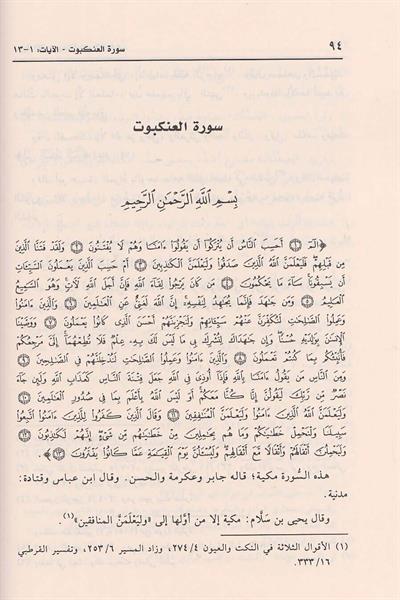 ٩٤ سورة العنكبوت - الآيات: ١-١٣
سورة العنكبوت
بِسْمِ اللَّهِ الرَّحْمَٰنِ الرَّحِيمِ
﴿الٓمٓ ۝١ أَحَسِبَ النَّاسُ أَن يُتْرَكُوٓا أَن يَقُولُوٓا ءَامَنَّا وَهُمْ لَا يُفْتَنُونَ ۝٢ وَلَقَدْ فَتَنَّا الَّذِينَ
مِن قَبْلِهِمْ فَلَيَعْلَمَنَّ اللَّهُ الَّذِينَ صَدَقُوا وَلَيَعْلَمَنَّ الْكَٰذِبِينَ ۝٣ أَمْ حَسِبَ الَّذِينَ يَعْمَلُونَ السَّيِّئَاتِ
أَن يَسْبِقُونَا سَآءَ مَا يَحْكُمُونَ ۝٤ مَن كَانَ يَرْجُوا لِقَآءَ اللَّهِ فَإِنَّ أَجَلَ اللَّهِ لَآتٍ وَهُوَ السَّمِيعُ
الْعَلِيمُ ۝٥ وَمَن جَٰهَدَ فَإِنَّمَا يُجَٰهِدُ لِنَفْسِهِۦٓ إِنَّ اللَّهَ لَغَنِيٌّ عَنِ الْعَٰلَمِينَ ۝٦ وَالَّذِينَ ءَامَنُوا
وَعَمِلُوا الصَّٰلِحَٰتِ لَنُكَفِّرَنَّ عَنْهُمْ سَيِّـَٔاتِهِمْ وَلَنَجْزِيَنَّهُمْ أَحْسَنَ الَّذِي كَانُوا يَعْمَلُونَ ۝٧ وَوَصَّيْنَا
الْإِنسَٰنَ بِوَٰلِدَيْهِ حُسْنًا وَإِن جَٰهَدَاكَ لِتُشْرِكَ بِي مَا لَيْسَ لَكَ بِهِۦ عِلْمٌ فَلَا تُطِعْهُمَآ إِلَيَّ مَرْجِعُكُمْ
فَأُنَبِّئُكُم بِمَا كُنتُمْ تَعْمَلُونَ ۝٨ وَالَّذِينَ ءَامَنُوا وَعَمِلُوا الصَّٰلِحَٰتِ لَنُدْخِلَنَّهُمْ فِي الصَّٰلِحِينَ ۝٩
وَمِنَ النَّاسِ مَن يَقُولُ ءَامَنَّا بِاللَّهِ فَإِذَآ أُوذِيَ فِي اللَّهِ جَعَلَ فِتْنَةَ النَّاسِ كَعَذَابِ اللَّهِ وَلَئِن جَآءَ
نَصْرٌ مِّن رَّبِّكَ لَيَقُولُنَّ إِنَّا كُنَّا مَعَكُمْ أَوَلَيْسَ اللَّهُ بِأَعْلَمَ بِمَا فِي صُدُورِ الْعَٰلَمِينَ ۝١٠
وَلَيَعْلَمَنَّ اللَّهُ الَّذِينَ ءَامَنُوا وَلَيَعْلَمَنَّ الْمُنَٰفِقِينَ ۝١١ وَقَالَ الَّذِينَ كَفَرُوا لِلَّذِينَ ءَامَنُوا اتَّبِعُوا
سَبِيلَنَا وَلْنَحْمِلْ خَطَٰيَٰكُمْ وَمَا هُم بِحَٰمِلِينَ مِنْ خَطَٰيَٰهُم مِّن شَيْءٍ إِنَّهُمْ لَكَٰذِبُونَ ۝١٢
وَلَيَحْمِلُنَّ أَثْقَالَهُمْ وَأَثْقَالًا مَّعَ أَثْقَالِهِمْ وَلَيُسْـَٔلُنَّ يَوْمَ الْقِيَٰمَةِ عَمَّا كَانُوا يَفْتَرُونَ ۝١٣﴾.
هذه السُّورة مكية؛ قاله جابر وعكرمة والحسن. وقال ابن عباس وقتادة:
مدنية.
وقال يحيى بن سَلَّام: مكية إلا من أولها إلى «وليَعْلَمَنَّ المنافقين»(١).
(١) الأقوال الثلاثة في النكت والعيون ٢٧٤/٤، وزاد المسير ٢٥٣/٦، وتفسير القرطبي
٣٣٣/١٦.